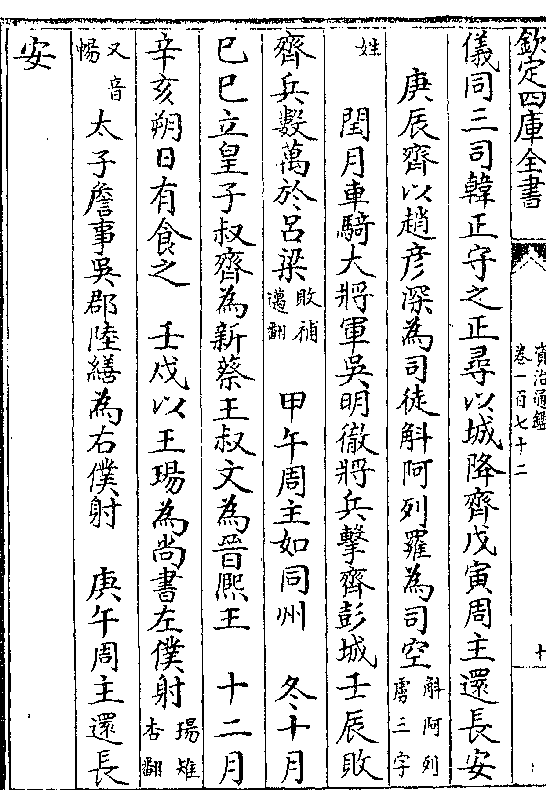 欽定四庫全書
資治通鑑
卷一百七十二
十
儀同三司韓正守之正尋以城降齊戊寅周主還長安
庚辰齊以趙彦深為司徒斛阿列羅為司空斛阿列虜三字
姓
閏月車騎大將軍吳明徹將兵擊齊彭城壬辰敗
齊兵數萬於吕梁敗補邁翻 甲午周主如同州 冬十月
己巳立皇子叔齊為新蔡王叔文為晉熈王 十二月
辛亥朔日有食之 壬戌以王瑒為尚書左僕射瑒雉杏翻
又音暢 太子詹事吳郡陸繕為右僕射 庚午周主還長
安